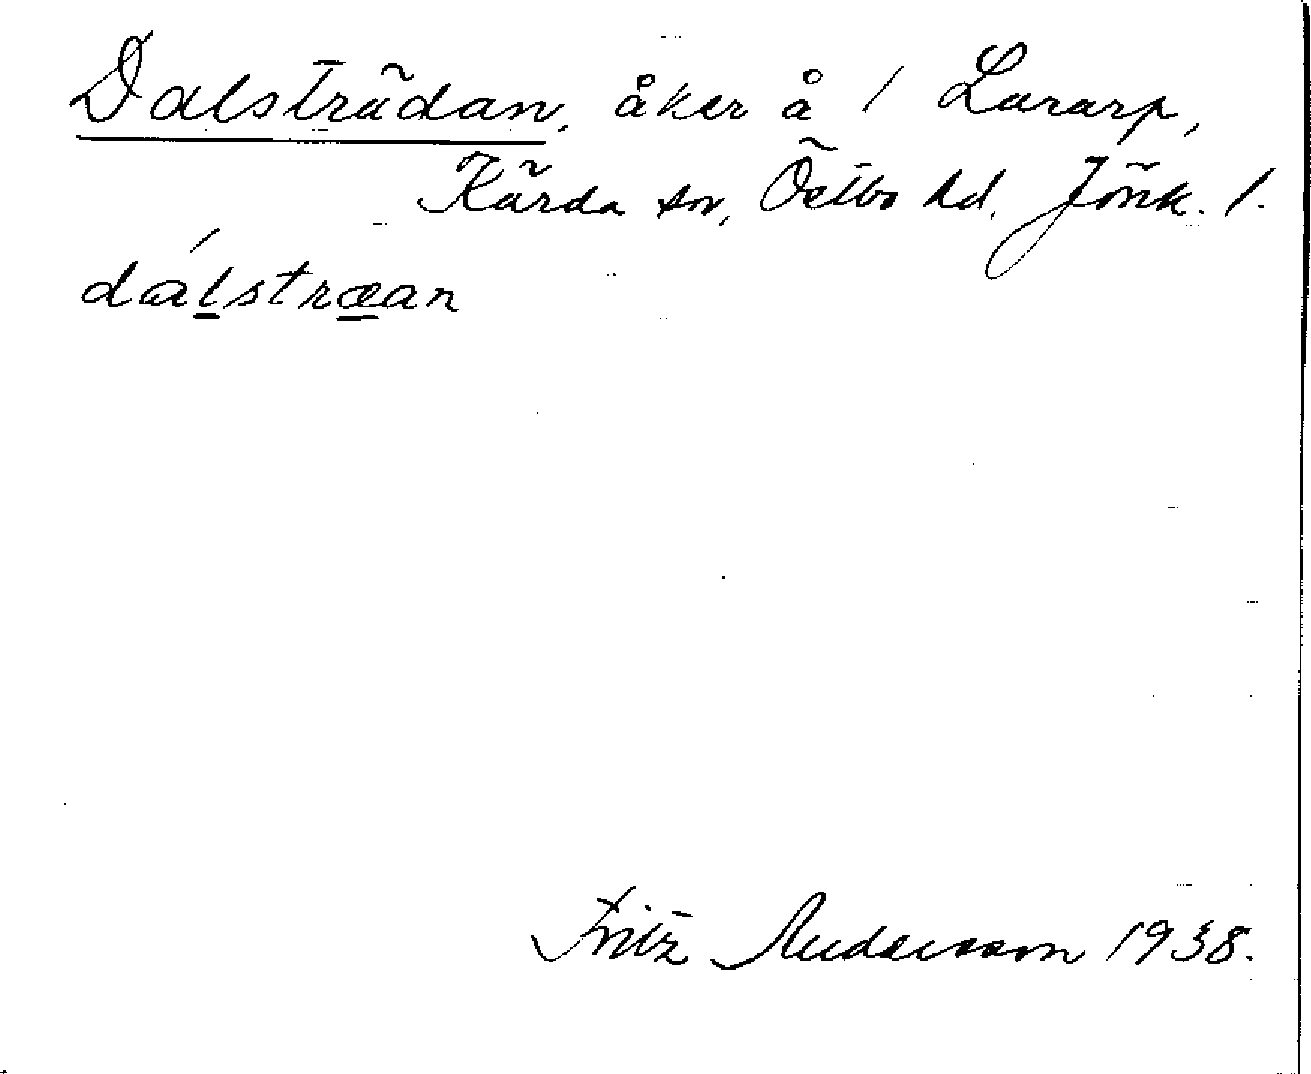 Dalsträdan, åker å 1 Lararp,
Kärda sn, Östbo hd, Jönk. l.
dálstræan
Fritz Andersson 1938.